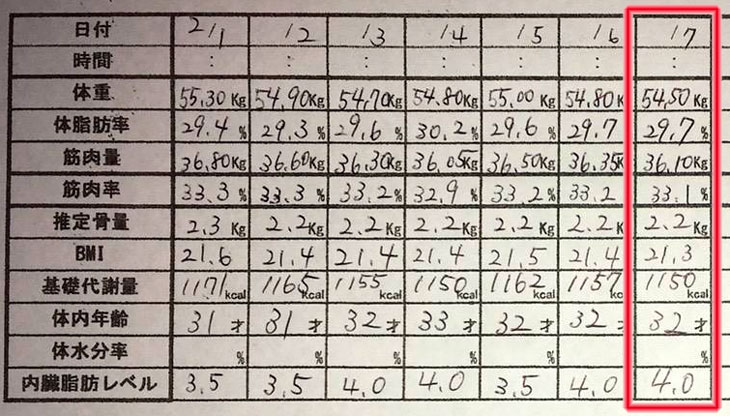 日付 2/1 /2 /3 /4 /5 /6 /7
時間 : : : : : : :
体重 55.30Kg 54.90Kg 54.70Kg 54.80Kg 55.00Kg 54.80Kg 54.50Kg
体脂肪率 29.4% 29.3% 29.6% 30.2% 29.6% 29.7 29.7%
筋肉量 36.80Kg 36.60Kg 36.30Kg 36.05Kg 36.50Kg 36.35K 36.10Kg
筋肉率 33.3% 33.3% 33.2% 32.9% 33.2% 33.2 33.1%
推定骨量 2.3Kg 2.2Kg 2.2Kg 2.2Kg 2.2Kg 2.2K 2.2Kg
BMI 21.6 21.4 21.4 21.4 21.5 21.4 21.3
基礎代謝量 1171kcal 1165kcal 1155kcal 1150kcal 1162kcal 1157kcal 1150kcal
体内年齢 31才 31才 32才 33才 32才 32才 32才
体水分率 % % % % % % %
内臓脂肪レベル 3.5 3.5 4.0 4.0 3.5 4.0 4.0